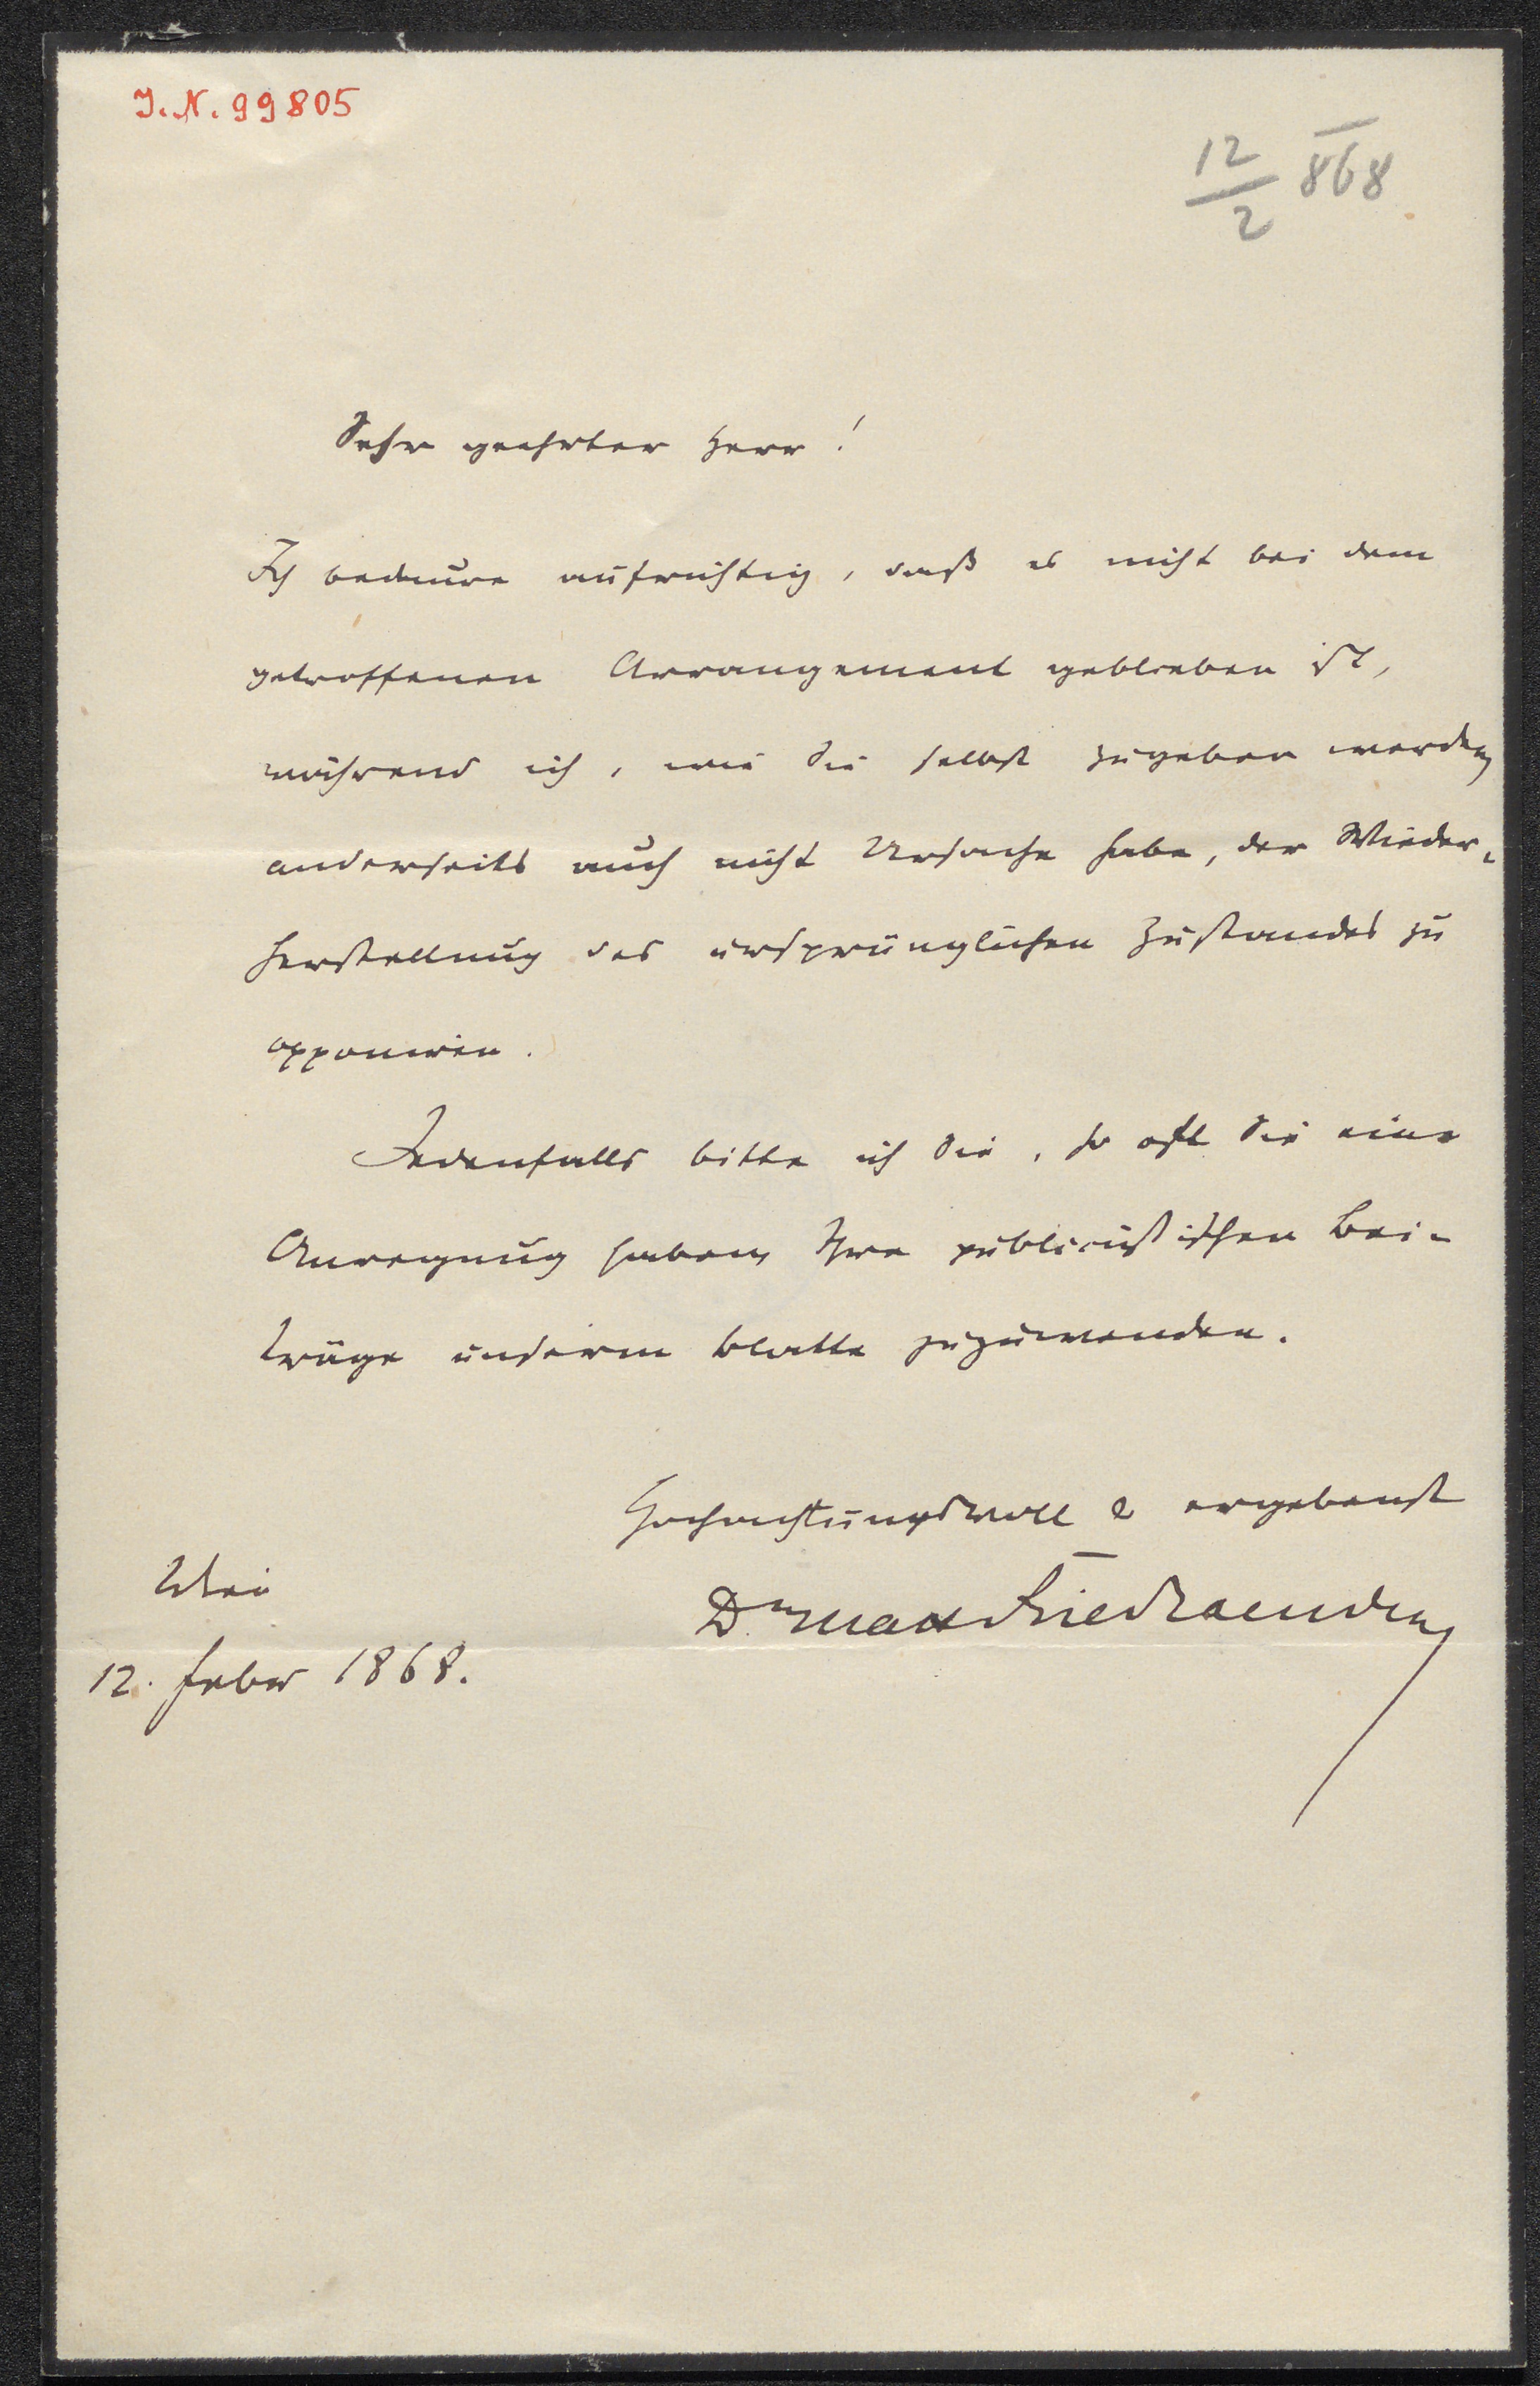 J. N. 99805
12/2 868
Sehr geehrter Herr!
Ich bedaure aufrichtig, daß es nicht bei dem
getroffenen Arrangement geblieben ist,
während ich, wie Sie selbst zugeben werden,
anderseits auch nicht Ursache habe, der Wieder-
herstellung des ursprünglichen Zustandes zu
opponiren.
Jedenfalls bitte ich Sie, so oft Sie eine
Anregung haben, Ihre publicistischen Bei-
träge unserem Blatte zuzuwenden.
Hochachtungsvoll & ergebenst
Dr. Max Friedlaender
Wien
12. Feber 1868.